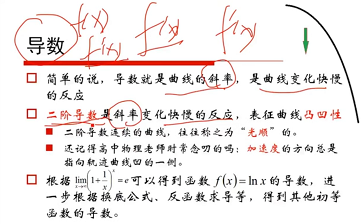 f(x)
f(x) f(x) f'(x)
导数
□ 简单的说，导数就是曲线的斜率，是曲线变化快慢
的反应
□ 二阶导数是斜率变化快慢的反应，表征曲线凸凹性
■ 二阶导数连续的曲线，往往称之为“光顺”的。
■ 还记得高中物理老师时常念叨的吗：加速度的方向总是
指向轨迹曲线凹的一侧。
□ 根据 lim x→∞ (1+1/x)^x = e 可以得到函数 f(x)=ln x 的导数，进
一步根据换底公式、反函数求导等，得到其他初等
函数的导数。